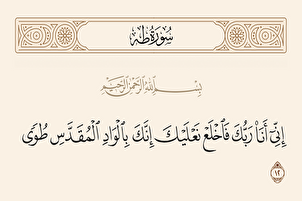 سُورَةُ طه
بِسْمِ اللَّهِ الرَّحْمَنِ الرَّحِيمِ
إِنِّي أَنَا۠ رَبُّكَ فَٱخْلَعْ نَعْلَيْكَ إِنَّكَ بِٱلْوَادِ ٱلْمُقَدَّسِ طُوًى
١٢